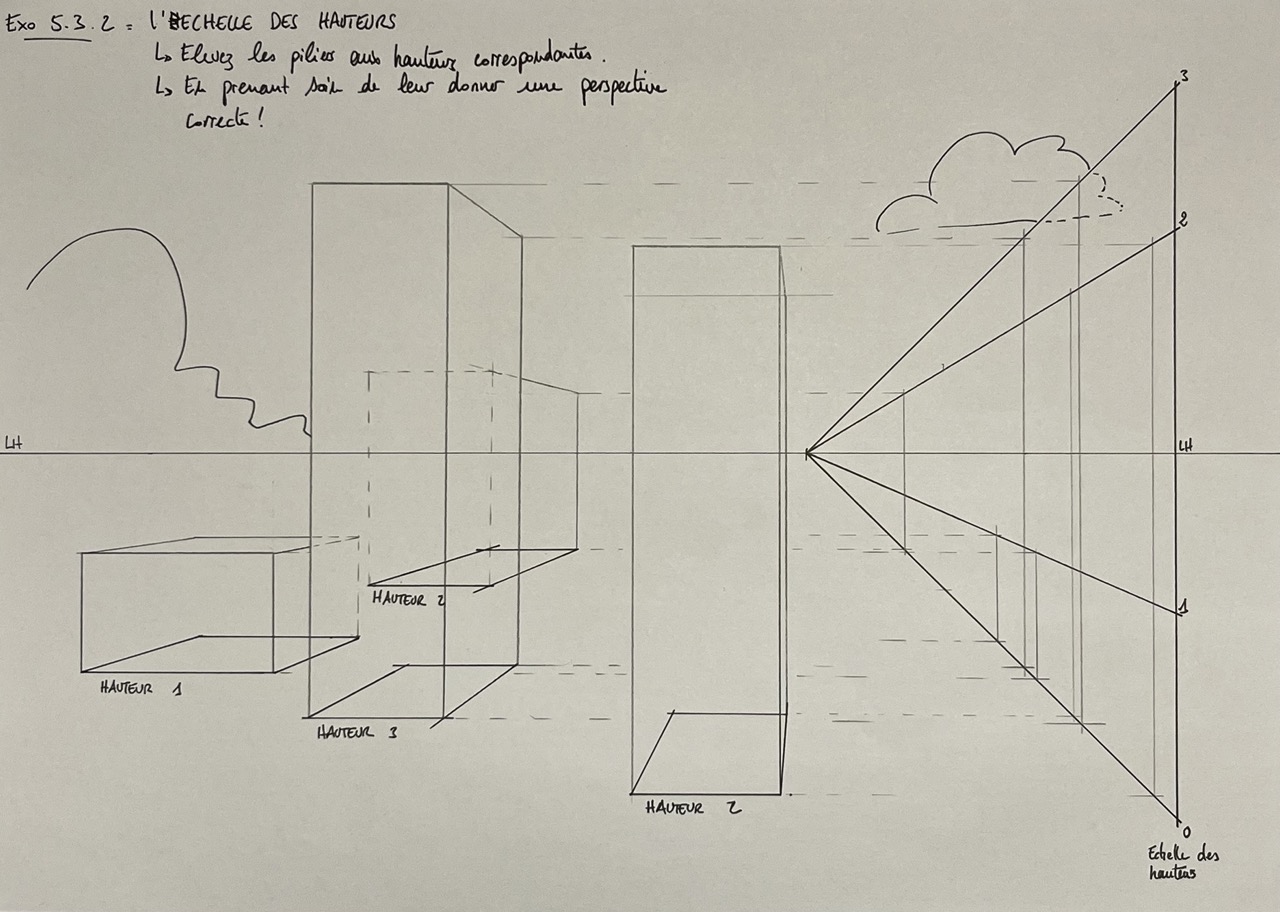 Exo 5.3.2 = l'ECHELLE DES HAUTEURS
↳ Elevez les piliers aux hauteurs correspondantes.
↳ En prenant soin de leur donner une perspective
correcte !
3
2
LH
LH
HAUTEUR 2
1
HAUTEUR 1
HAUTEUR 3
HAUTEUR 2
0
Echelle des
hauteurs